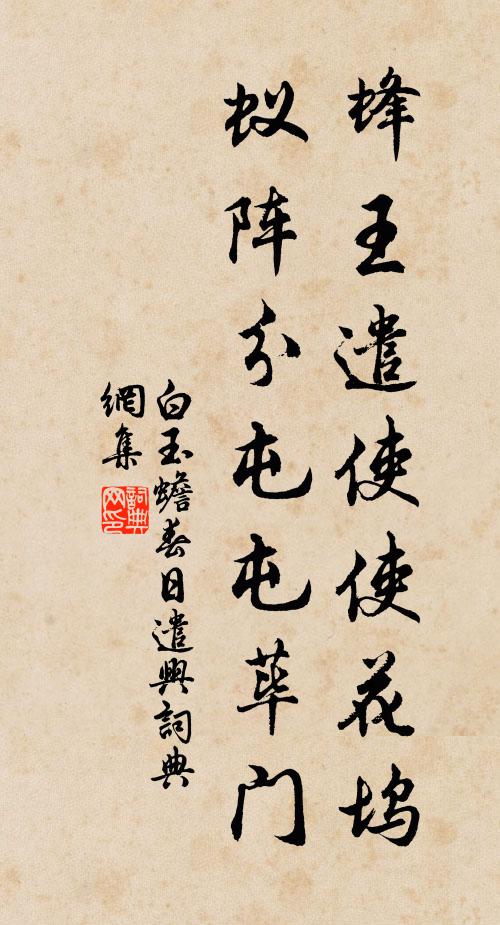 蜂王遣使使花坞
蚁阵分屯屯荜门
白玉蟾春日遣興詞典
網集
詞典网印